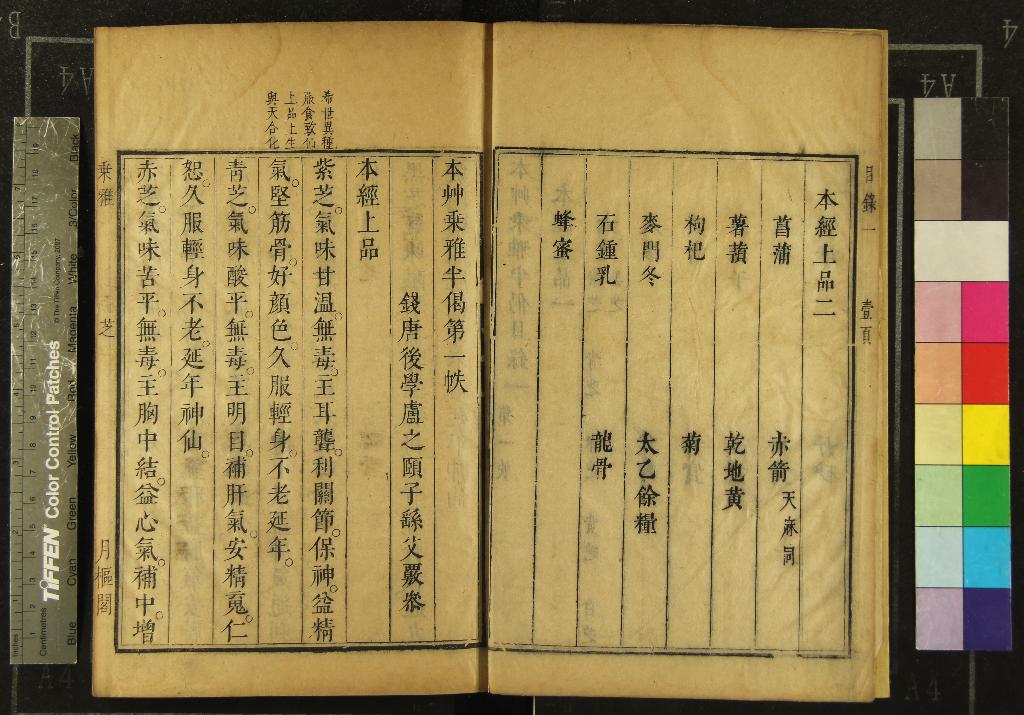 目錄一 壹頁
本經上品二
菖蒲 赤箭 天麻同
薯蕷 乾地黃
枸杞 菊
麥門冬 太乙餘糧
石鍾乳 龍骨
蜂蜜
本艸乘雅半偈第一帙
錢唐後學盧之頤子繇父覈叅
本經上品
希世異種
服食致仙
上品上生
與天合化
紫芝。氣味甘溫。無毒。主耳聾。利關節。保神。益精
氣。堅筋骨。好顏色。久服輕身。不老延年。
青芝。氣味酸平。無毒。主明目。補肝氣。安精䰟。仁
恕。久服輕身不老。延年神仙。
赤芝。氣味苦平。無毒。主胸中結。益心氣。補中。增
乘雅 芝 月樞閣
TIFFEN® Color Control Patches
© The Tiffen Company, 2007
Blue Cyan Green Yellow Red Magenta White 3/Color Black
Inches
Centimetres
A4
A4
A4
A4
B
4